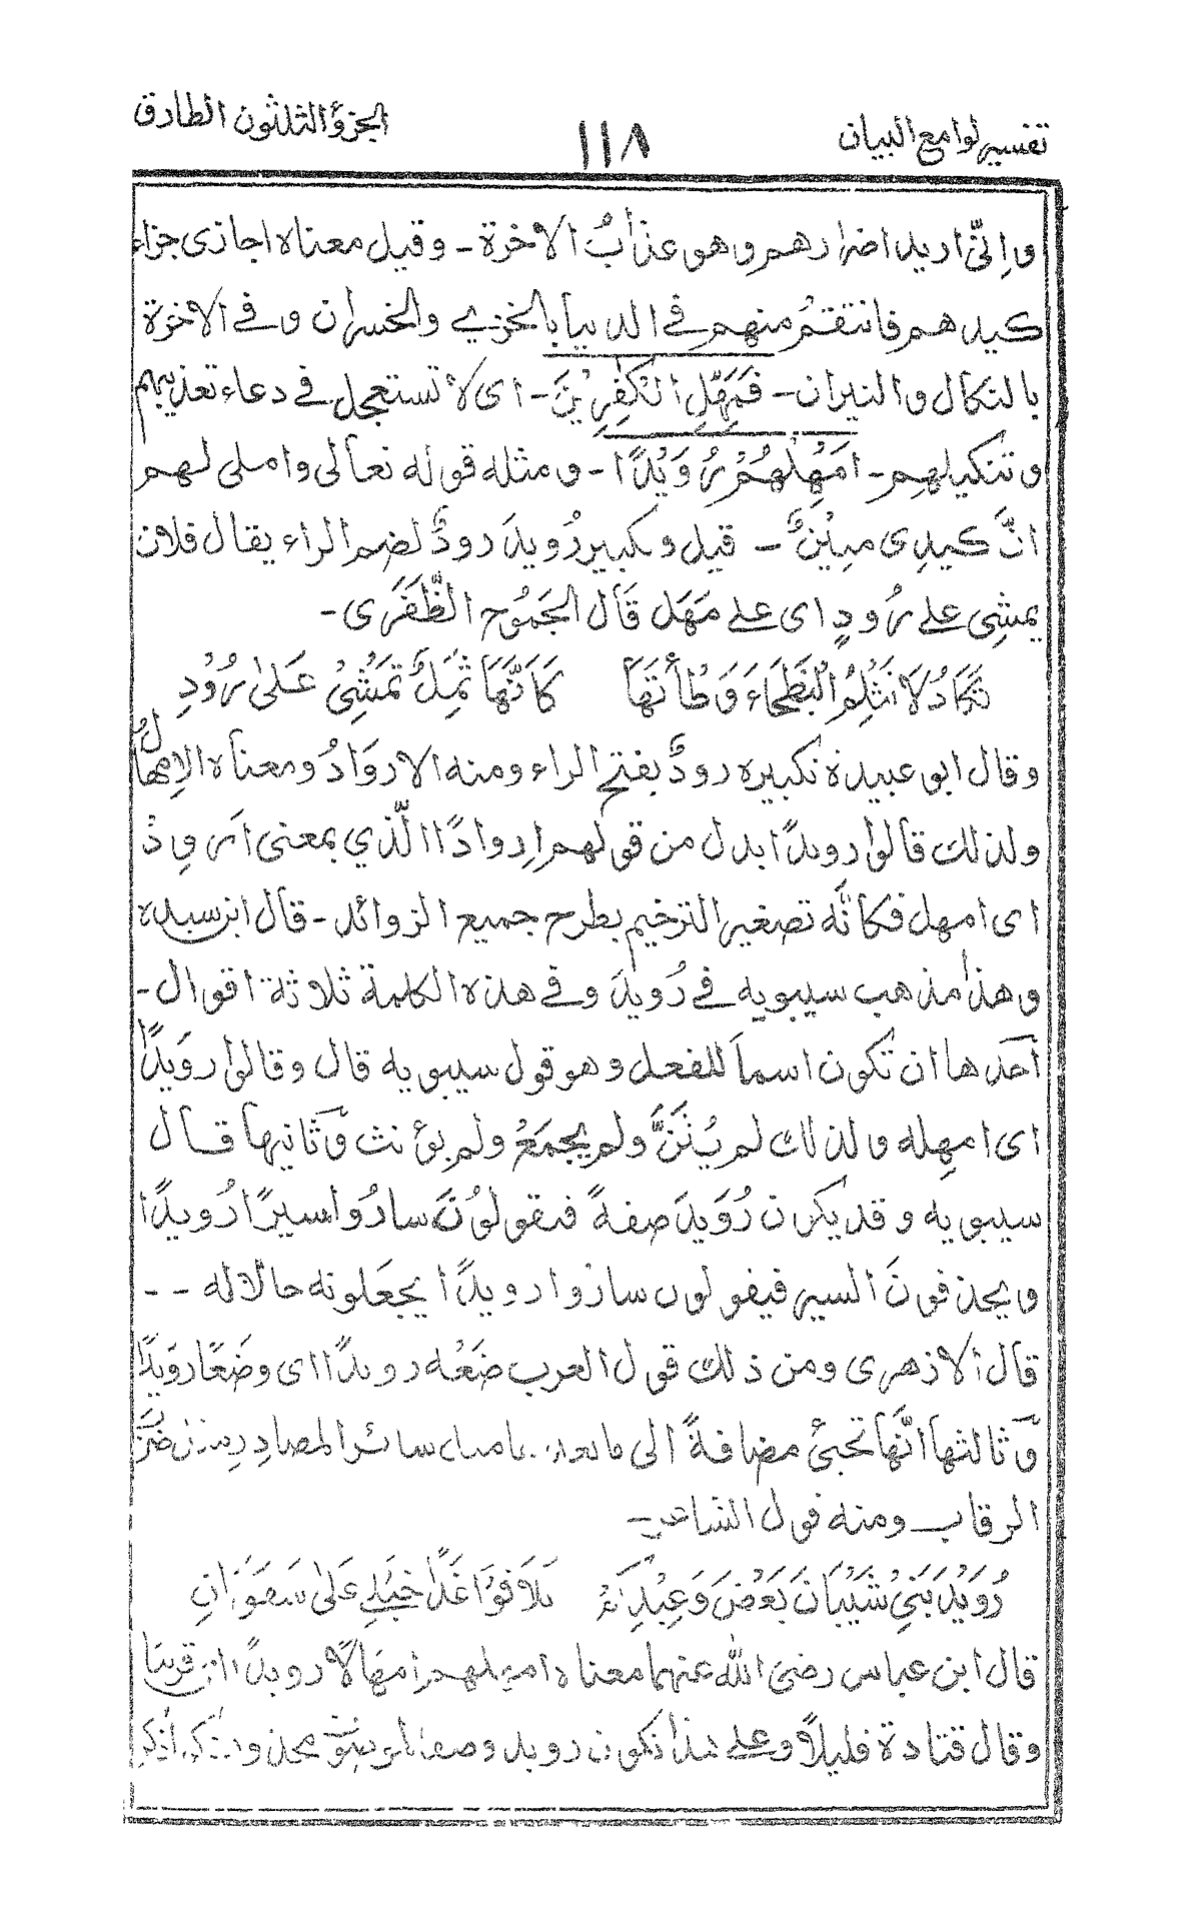 تفسير لوامع البيان
١١٨
الجزؤ الثلثون الطارق
وانّى اريد اضرارهم وهو عذابُ الاخرة - وقيل معناه اجازى جزاء
كيدهم فانتقمُ منهم فى الدنيا بالخزي والخسران وفى الاخرة
بالنكال والنيران - فَمَهِّلِ الْكٰفِرِيْنَ - اى لا تستعجل فى دعاء تعذيبهم
وتنكيلهم - اَمْهِلْهُمْ رُوَيْدًا - ومثله قوله تعالى واملى لهم
انّ كيدى مبيْنٌ - قيل وكبير رُويدَ رودٌ لضم الراء يقال فلان
يمشى على رُودٍ اى على مَهَل قَال الجَمُوْح الظَّفَرَى -
تَكَادُ لَا تَثْلِمُ الْبَطْحَاءَ وَطْأَتُهَا كَاَنَّهَا ثَمِلٌ تَمْشِىْ عَلىٰ رُوْدِ
وقال ابو عبيدة تكبيره رودٌ بفتح الراء ومنه الاروَادُ ومعناه الامهالُ
ولذلك قالوا رويدًا بدل من قولهم اِروادًا الّذي بمعنى اَروِدْ
اى امهل فكانّه تصغير الترخيم بطرح جميع الزوائد - قال ابن سيده
وهذا مذهب سيبويه فى رُويدَ وفى هذه الكلمة ثلاثة اقوال -
اَحَدها ان تكون اسماً للفعل وهو قول سيبويه قال وقالوا رويدًا
اى امهِله ولذلك لم يُثَنَّ ولم يجمَعْ ولم يؤنث وَثانيها قال
سيبويه وقد يكون رُوَيدَ صفةً فيقولوُنَ سارُوا سيرًا رُويدًا
ويحذفونَ السير فيقولون ساروا رويدًا يجعَلونه حالا له - -
قال الازهرى ومن ذلك قول العرب ضَعْه رويدًا اى وضَعًا رويدًا
وَثالثها انّها تجئ مضافةً الى ما بعد سائر المصادر ضَرْبَ
الرقاب ومنه قول الشاعر -
رُوَيْدَ بَنِىْ شَيْبَانَ بَعْضَ وَعِيْدِكُمْ تلاقوا غَدًا خَيْلِى عَلىٰ سَفَوَانِ
قال ابن عباس رضى الله عنهما معناه امهلهم امهَالًا رويدًا اى قريبا
وقال قتادة قليلًا وعلى هذا تكون رويد وصفا لموصوف محذوف